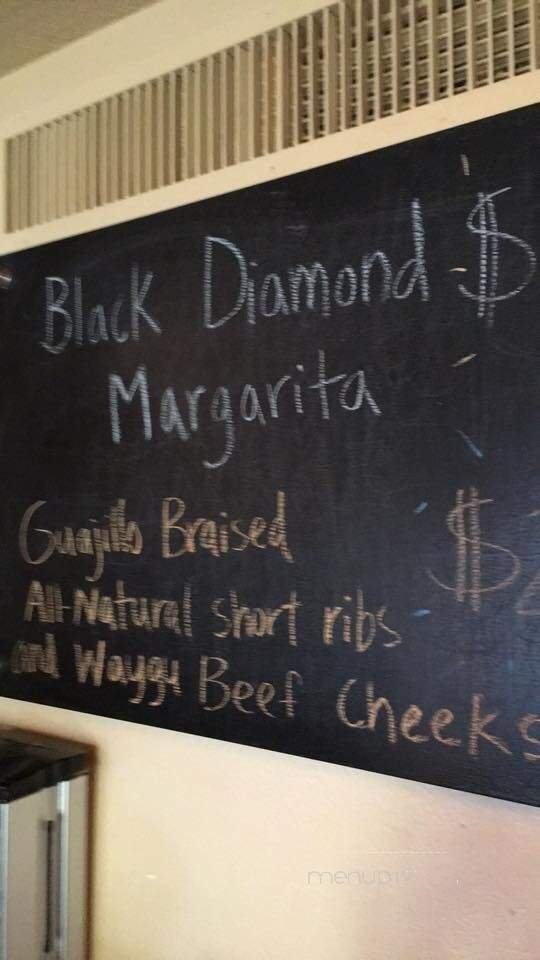 Black Diamond $
Margarita
Guajillo Braised $
All-Natural short ribs
and Waygu Beef Cheeks
menupix